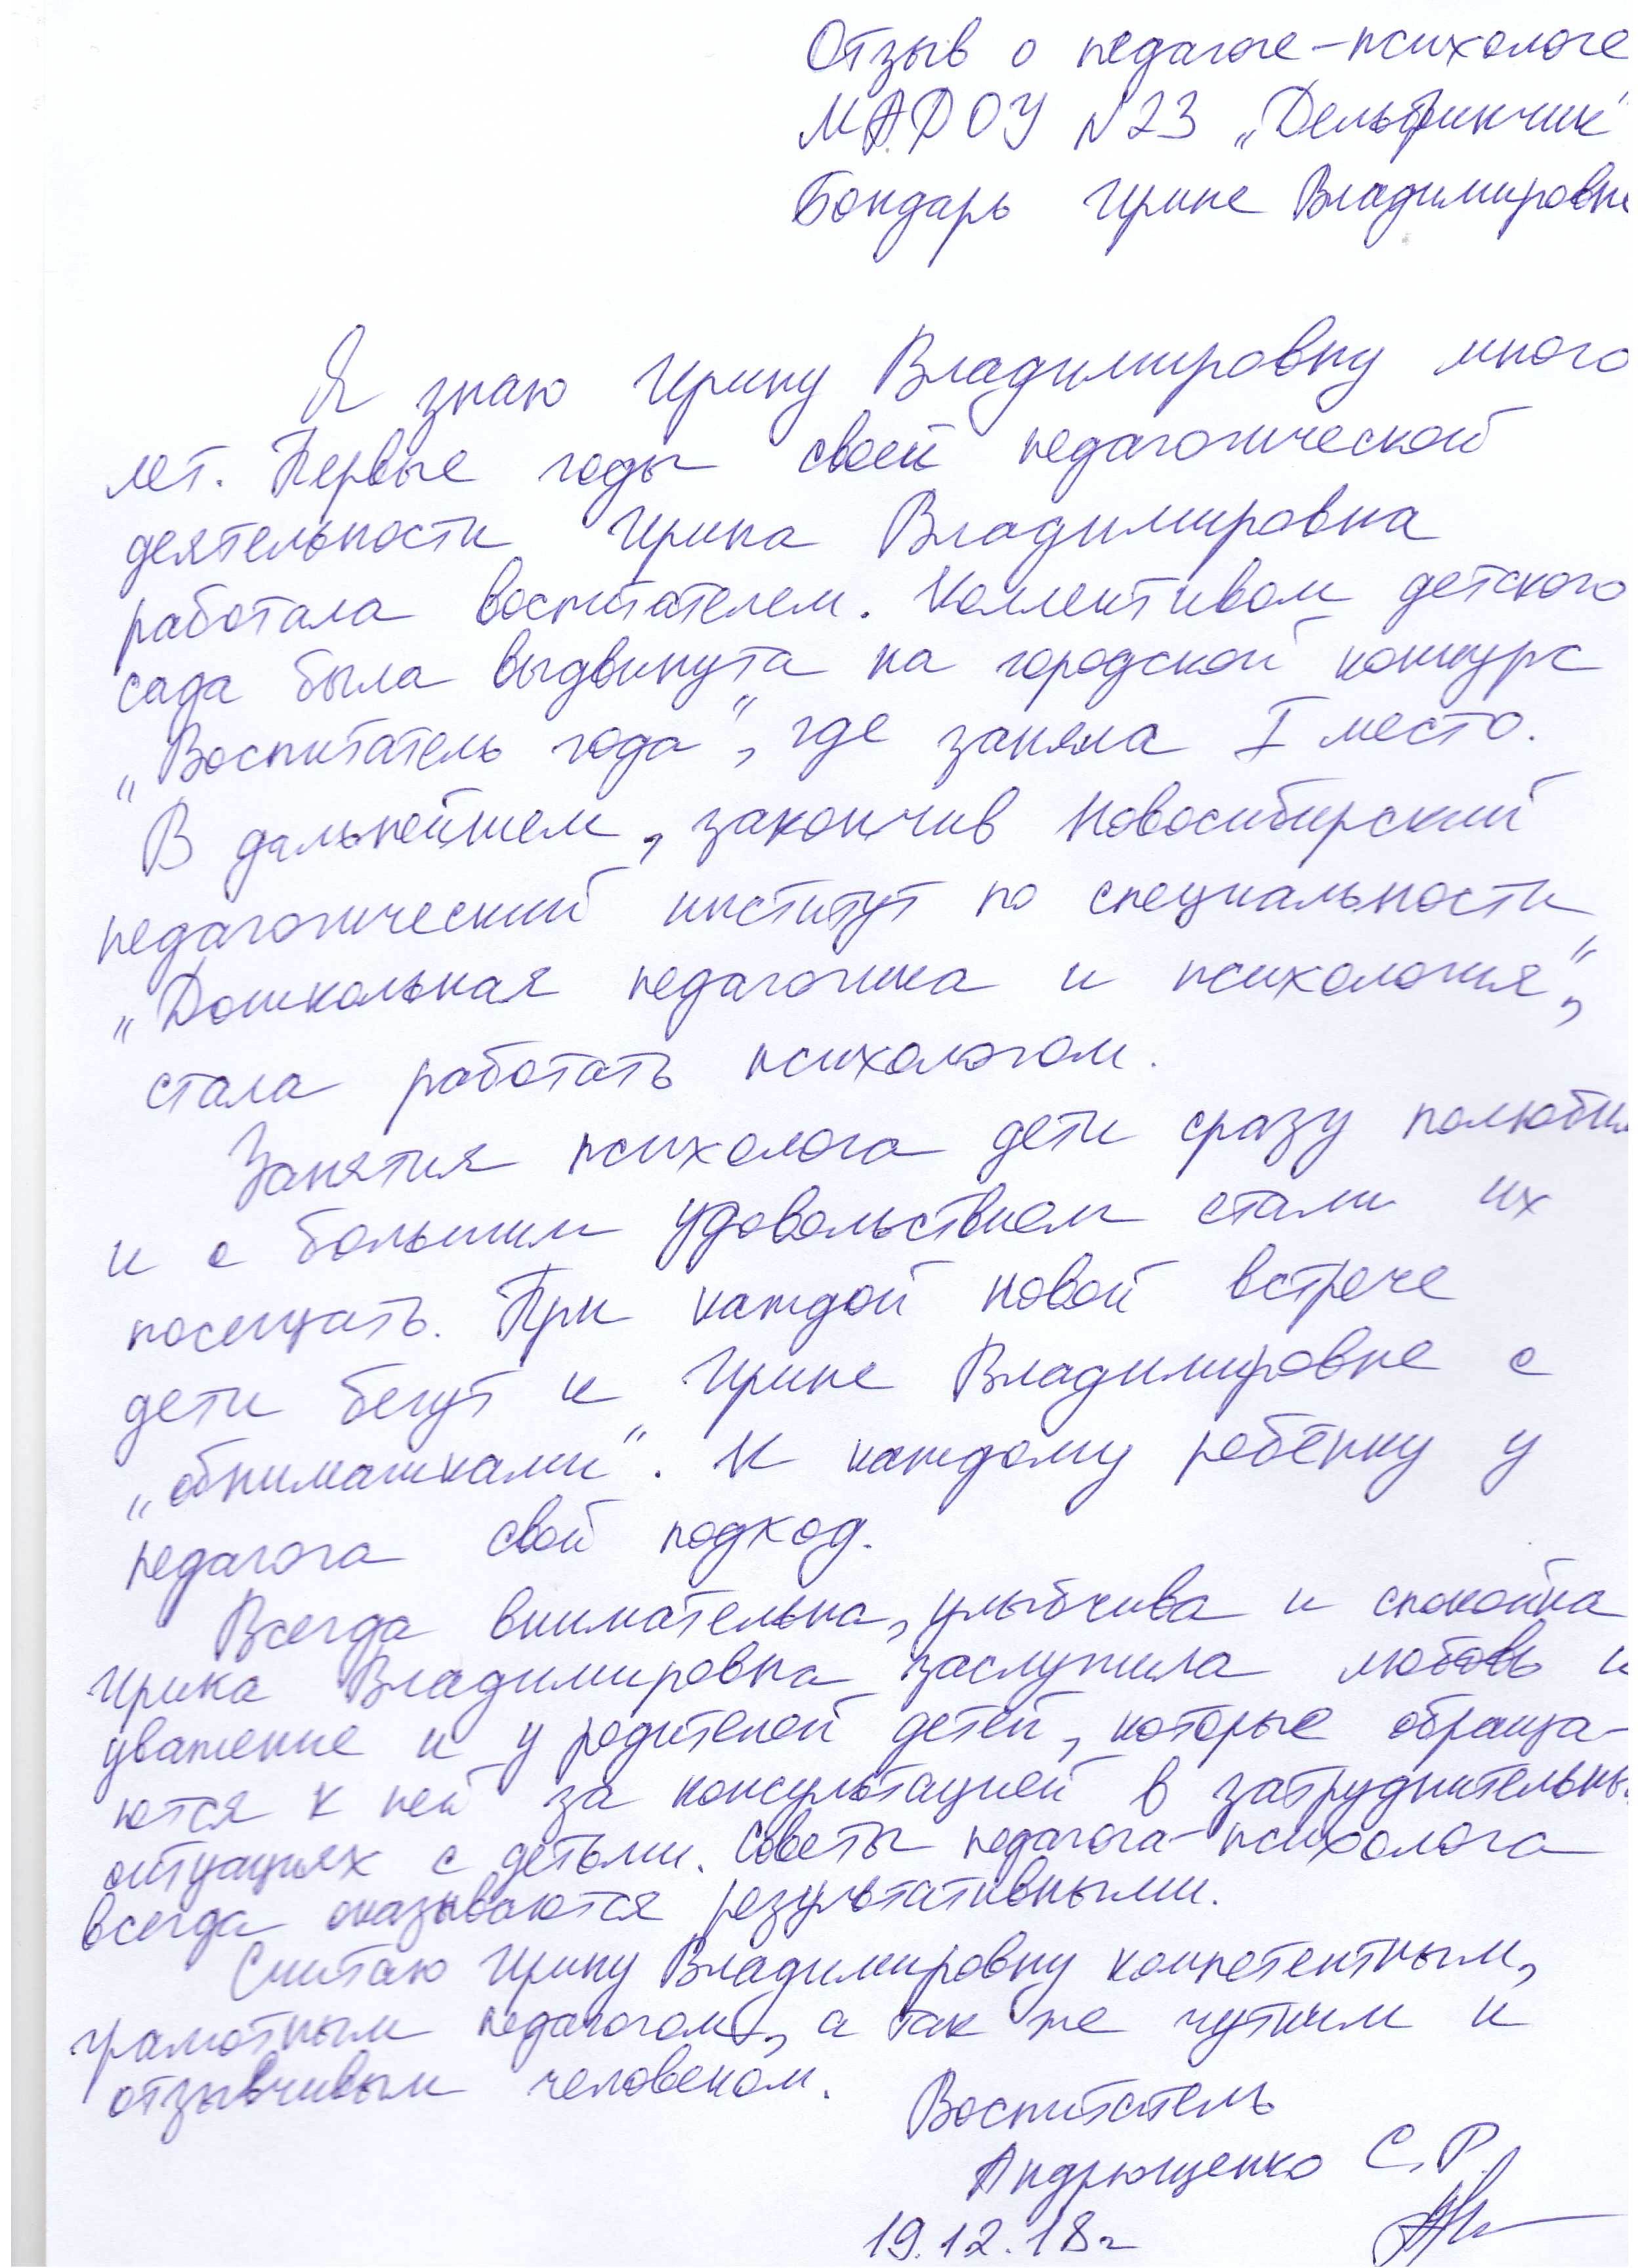 Отзыв о педагоге-психологе
МАДОУ №23 „Дельфинчик"
Бондарь Ирине Владимировне
Я знаю Ирину Владимировну много
лет. Первые годы своей педагогической
деятельности Ирина Владимировна
работала воспитателем. Коллективом детского
сада была выдвинута на городской конкурс
„Воспитатель года", где заняла I место.
В дальнейшем, закончив Новосибирский
педагогический институт по специальности
„Дошкольная педагогика и психология",
стала работать психологом.
Занятия психолога дети сразу полюбили
и с большим удовольствием стали их
посещать. При каждой новой встрече
дети бегут к Ирине Владимировне с
„обнимашками". К каждому ребёнку у
педагога свой подход.
Всегда внимательна, улыбчива и спокойна
Ирина Владимировна заслужила любовь и
уважение и у родителей детей, которые обраща-
ются к ней за консультацией в затруднительных
ситуациях с детьми. Советы педагога-психолога
всегда оказываются результативными.
Считаю Ирину Владимировну компетентным,
грамотным педагогом, а так же чутким и
отзывчивым человеком.
Воспитатель
Андрющенко С.Р.
19.12.18г